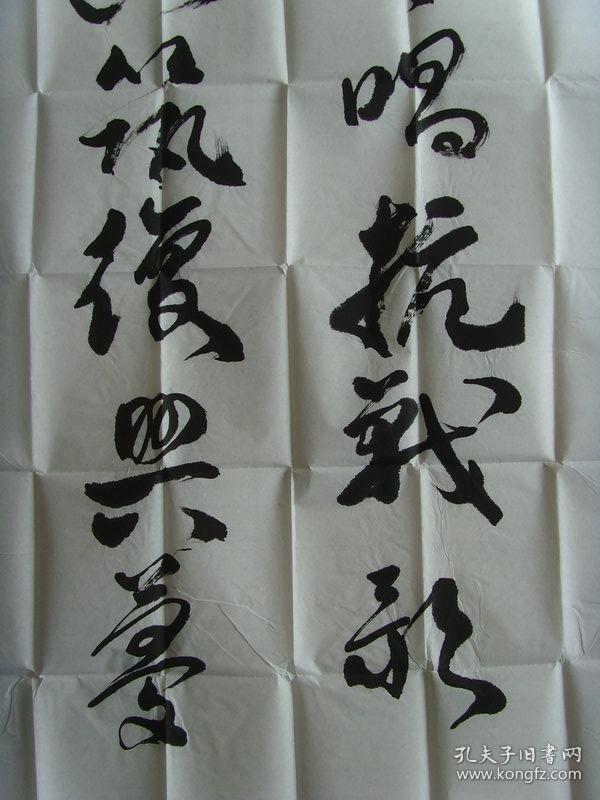 唱抗战歌
筑復興夢
孔夫子旧书网
www.kongfz.com